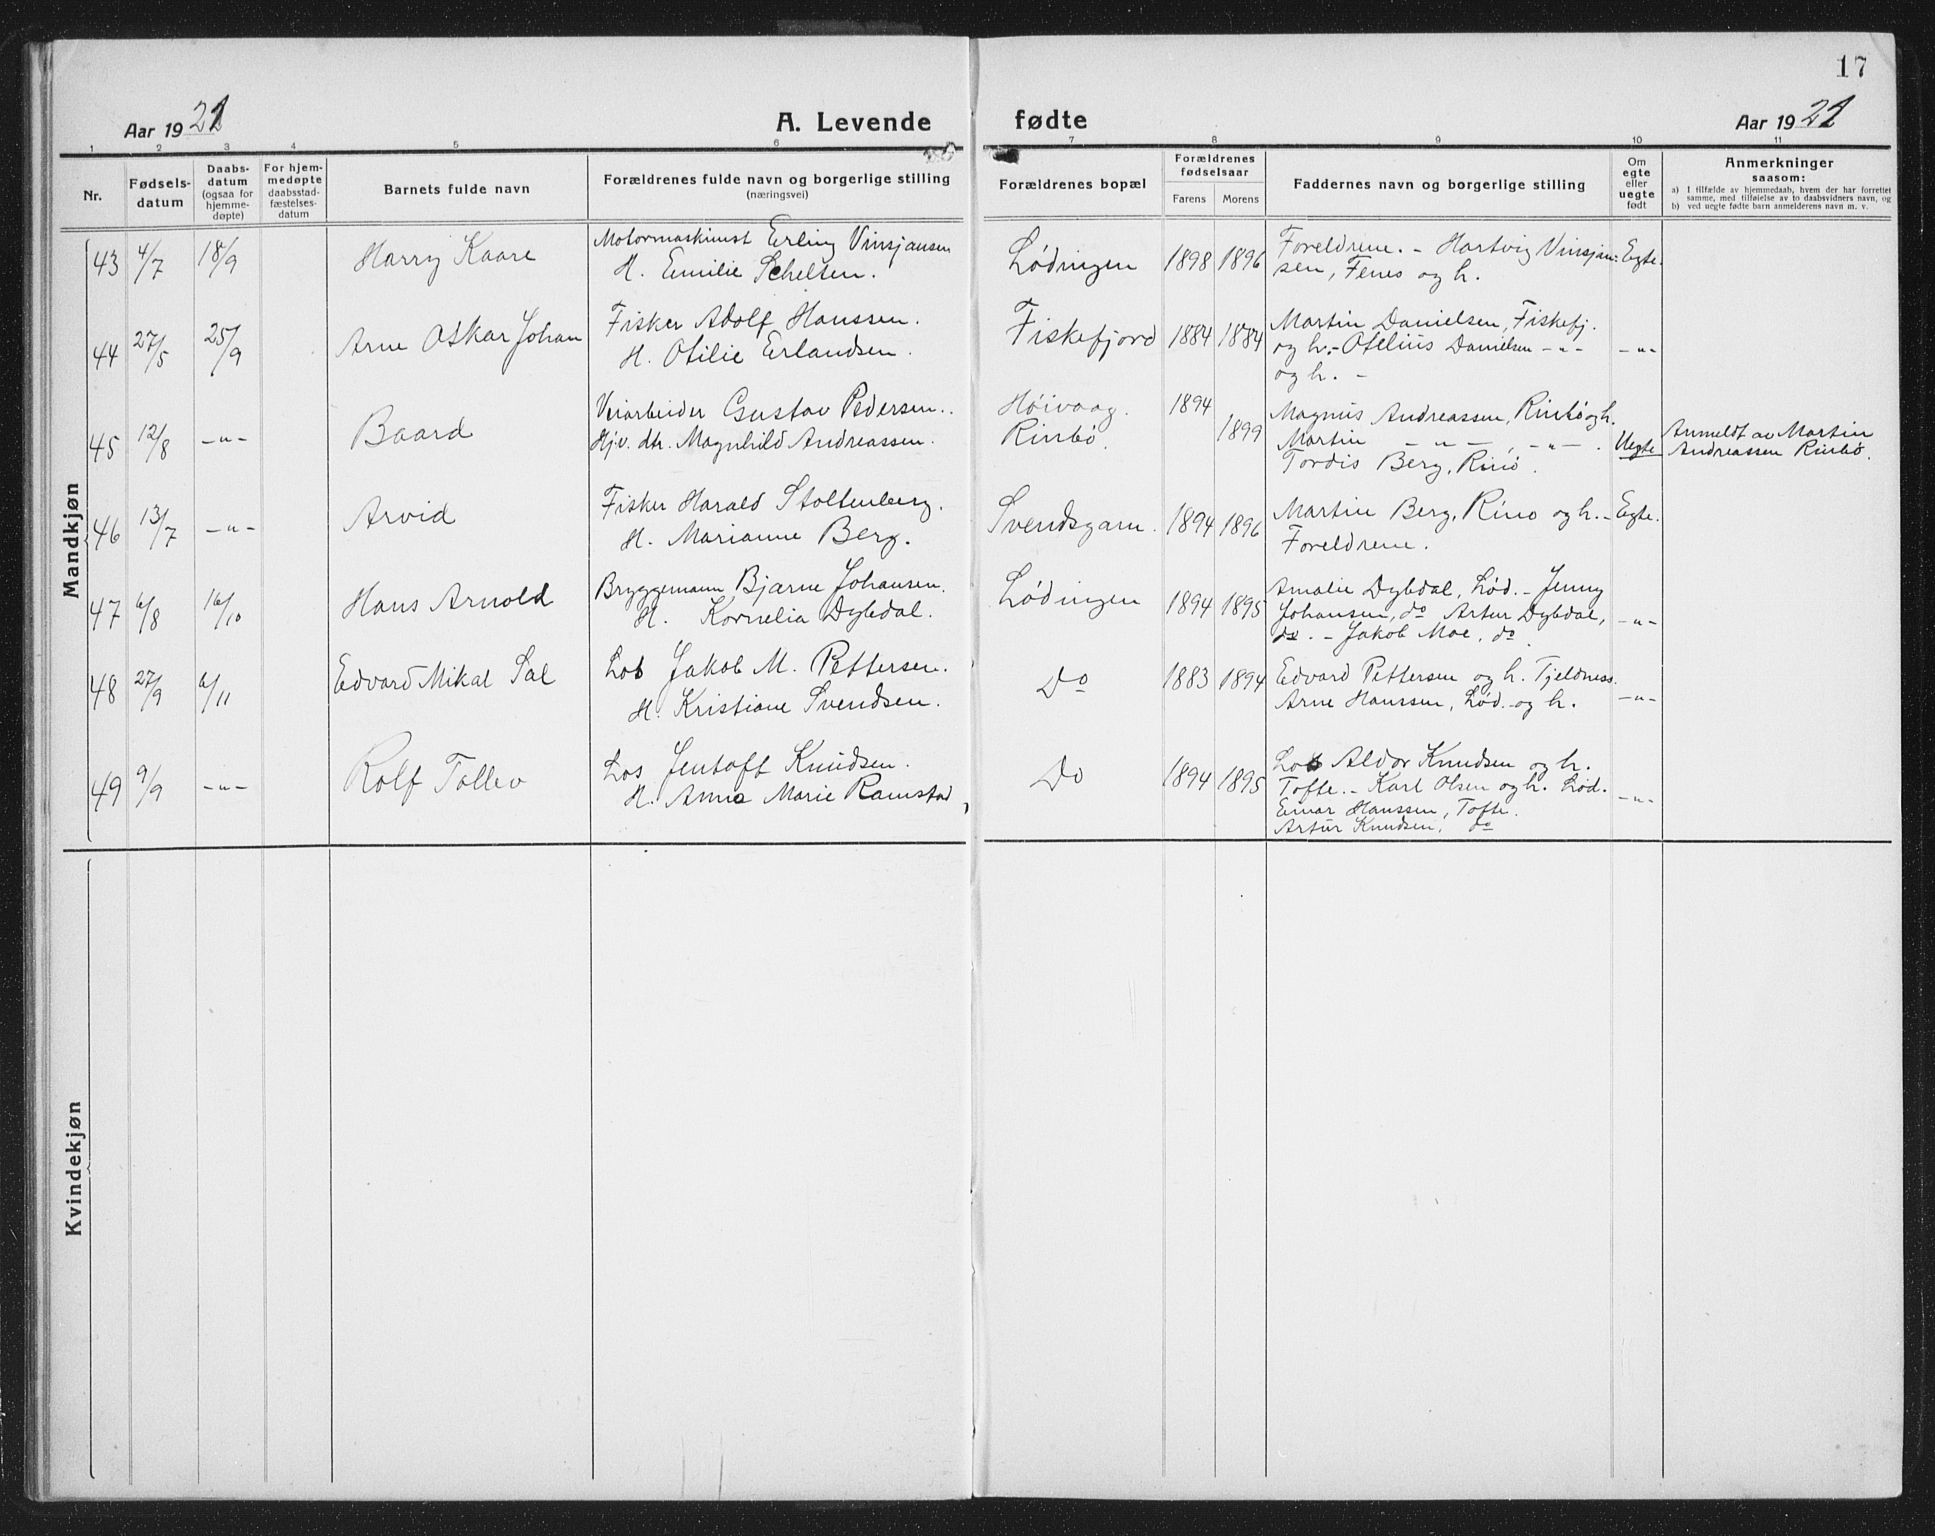 17
Aar 1921
A. Levende
fødte
Aar 1921
1 2 3 4 5 6 7 8 9 10 11
Nr.
Fødsels-
datum
Daabs-
datum
(ogsaa for
hjemme-
døpte)
For hjem-
medøpte
daabsstad-
fæstelses-
datum
Barnets fulde navn
Forældrenes fulde navn og borgerlige stilling
(næringsvei)
Forældrenes bopæl
Forældrenes
fødselsaar
Farens Morens
Faddernes navn og borgerlige stilling
Om
egte
eller
uegte
født
Anmerkninger
saasom:
a) I tilfælde av hjemmedaab, hvem der har forrettet
samme, med tilføielse av to daabsvidners navn, og
b) ved uegte fødte barn anmelderens navn m. v.
Mandkjøn
43 4/7 18/9 Harry Kaare
Motormaskinist Erling Vinsjansen
H. Emilie Schelten.
Lødingen 1898 1896
Foreldrene. - Hartvig Vinsjan-
sen, Fenes og h.
Egte.
44 27/5 25/9 Arne Oskar Johan
Fisker Adolf Hanssen.
H. Otilie Erlandsen.
Fiskefjord 1884 1884
Martin Danielsen, Fiskefj.
og h. - Otelius Danielsen -"-
og h. -
-"-
45 12/8 -"- Baard
Veiarbeider Gustav Pedersen..
Hjv. dtr. Magnhild Andreassen.
Høivaag.
Rinbø.
1894
1899
Magnus Andreassen, Rinbø og h.
Martin -"-, -"-.
Tordis Berg, Rinø.
Uegte
Anmeldt av Martin
Andreassen Rinbø.
46 13/7 -"- Arvid
Fisker Harald Stoltenberg.
H. Marianne Berg.
Svendsgam. 1894 1896
Martin Berg, Rinø og h. -
Foreldrene.
Egte.
47 6/8 16/10 Hans Arnold
Bryggemann Bjarne Johansen.
H. Kornelia Dybdal.
Lødingen 1894 1895
Amalie Dybdal, Lød. - Jenny
Johansen, do Artur Dybdal,
do. - Jakob Moe, do.
-"-
48 27/9 6/11 Edvard Mikal Sal
Los Jakob M. Pettersen.
H. Kristiane Svendsen.
Do 1883 1894
Edvard Pettersen og h. Tjeldness.
Arne Hanssen, Lød. og h.
-"-
49 9/9 -"- Rolf Tollev
Los Jentoft Knudsen.
H. Anna Marie Ramstad,
Do 1894 1895
Los Aldor Knudsen og h.
Tofte. - Karl Olsen og h. Lød.
Einar Hanssen, Tofte.
Artur Knudsen, do
-"-
Kvindekjøn